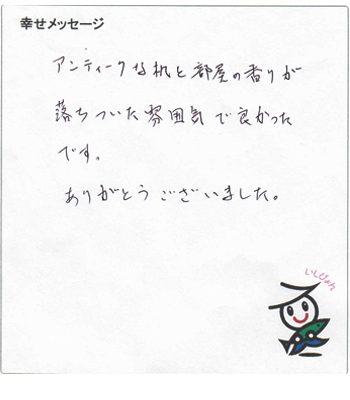 幸せメッセージ
アンティークな机と部屋の香りが
落ちついた雰囲気で良かった
です。
ありがとうございました。